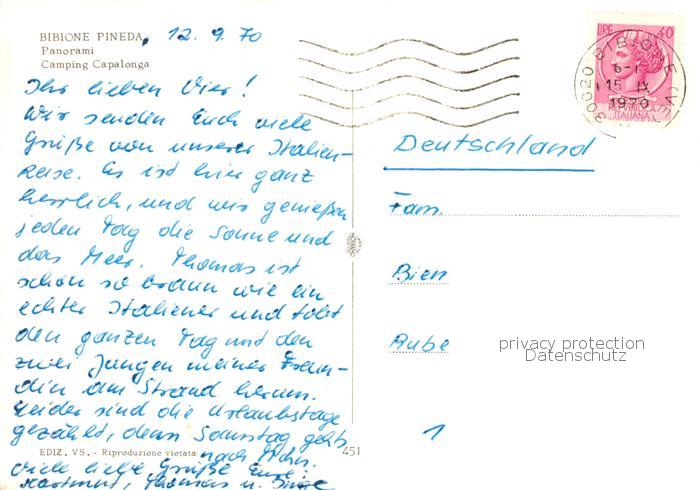 BIBIONE PINEDA, 12.9.70
Panorami
Camping Capalonga
Ihr lieben Vier!
Wir senden Euch viele
Grüße von unserer Italien-
Reise. Es ist hier ganz
herrlich, und wir genießen
jeden Tag die Sonne und
das Meer. Thomas ist
schon so braun wie ein
echter Italiener und tobt
den ganzen Tag mit den
zwei Jungen meiner Freun-
din am Strand herum.
Leider sind die Urlaubstage
gezählt, denn Samstag gehts
EDIZ. VS. - Riproduzione vietata
nach Mchn.
Viele liebe Grüße Eure
Hartmut, Thomas u.
451
LIRE 40
ITALIANA
30020 BIBIONE (VE)
15 IX
1970
Deutschland
Fam.
Bien
Bube
privacy protection
Datenschutz
1